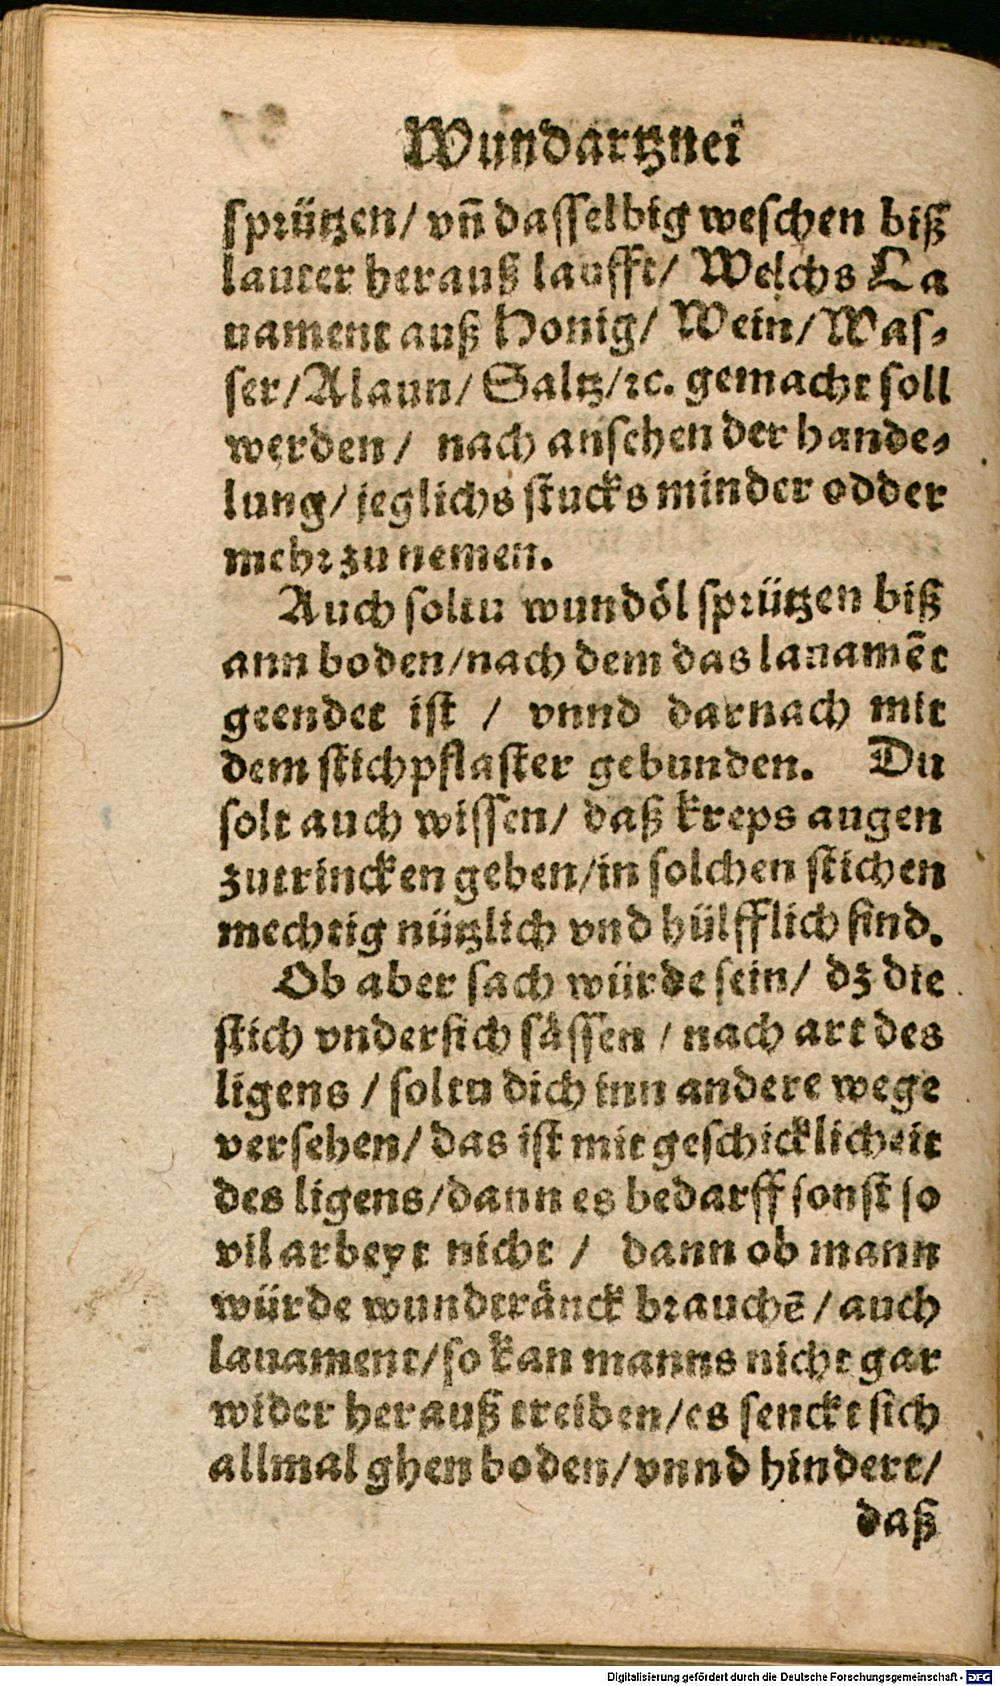 Wundartznei
sprützen/ vñ dasselbig weschen biß
lauter herauß laufft/ Welchs La
uament auß Honig/ Wein/ Was⸗
ser/ Alaun/ Saltz/ ꝛc. gemacht soll
werden/ nach ansehen der hande⸗
lung/ jeglichs stucks minder odder
mehr zu nemen.
Auch soltu wundöl sprützen biß
ann boden/ nach dem das lauamēt
geendet ist / vnnd darnach mit
dem stichpflaster gebunden. Du
solt auch wissen/ daß kreps augen
zutrincken geben/ in solchen stichen
mechtig nützlich vnd hülfflich sind.
Ob aber sach würde sein/ dz die
stich vndersich sässen / nach art des
ligens / soltu dich inn andere wege
versehen/ das ist mit geschicklicheit
des ligens/ dann es bedarff sonst so
vil arbeyt nicht / dann ob mann
würde wundtränck brauchē / auch
lauament/ so kan manns nicht gar
wider herauß treiben/ es senckt sich
allmal ghen boden/ vnnd hindert/
daß
Digitalisierung gefördert durch die Deutsche Forschungsgemeinschaft - DFG